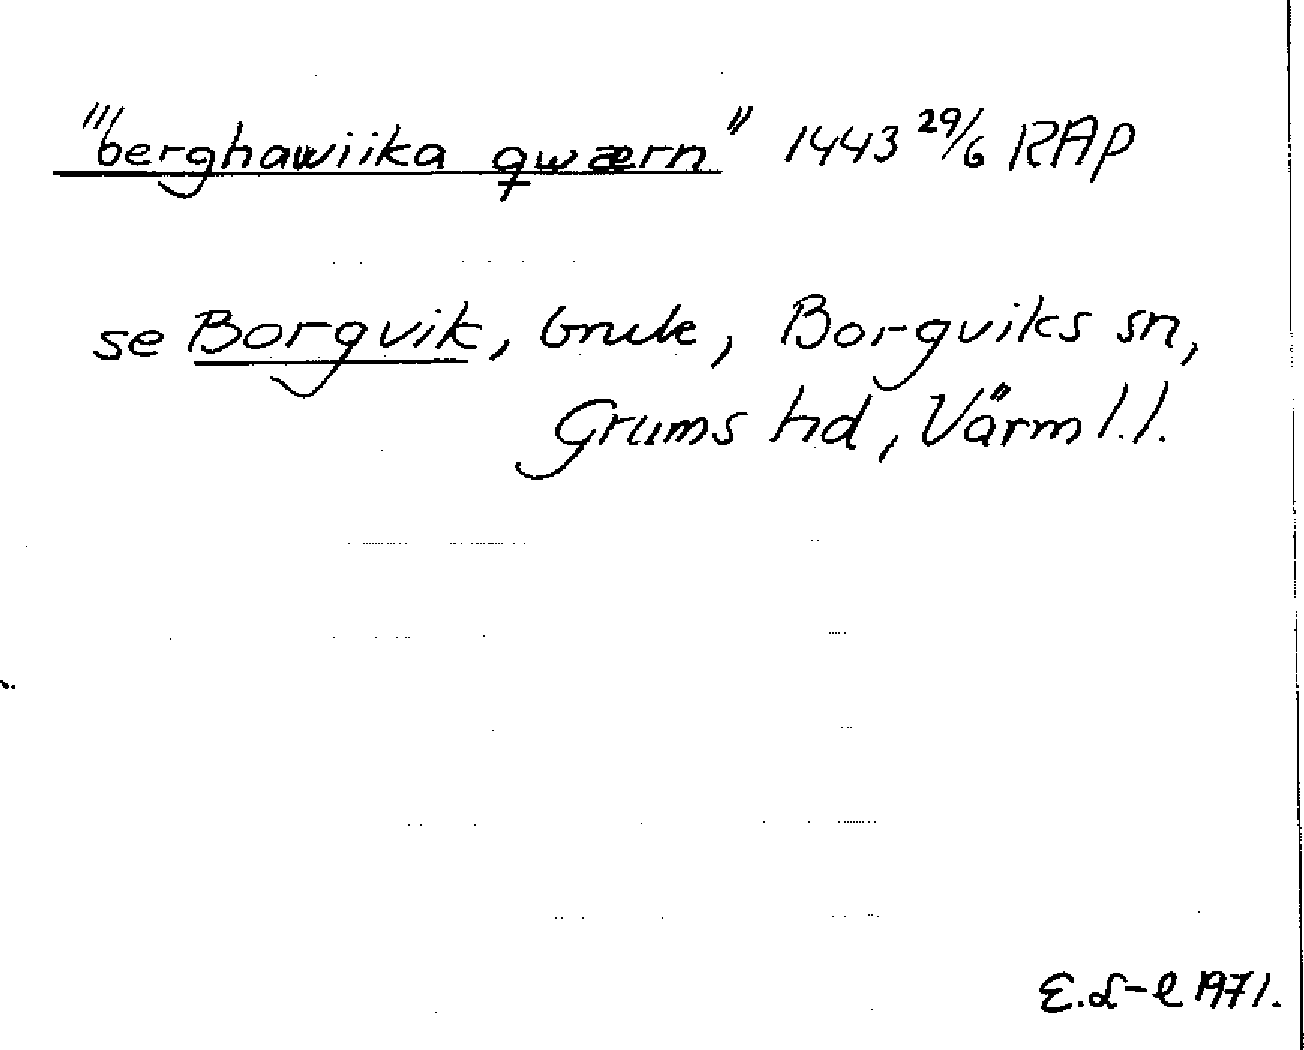 "berghawiika qwærn" 1443 29/6 RAp
se Borgvik, bruk, Borgviks sn,
Grums hd, Värml.l.
E.L-l 1971.